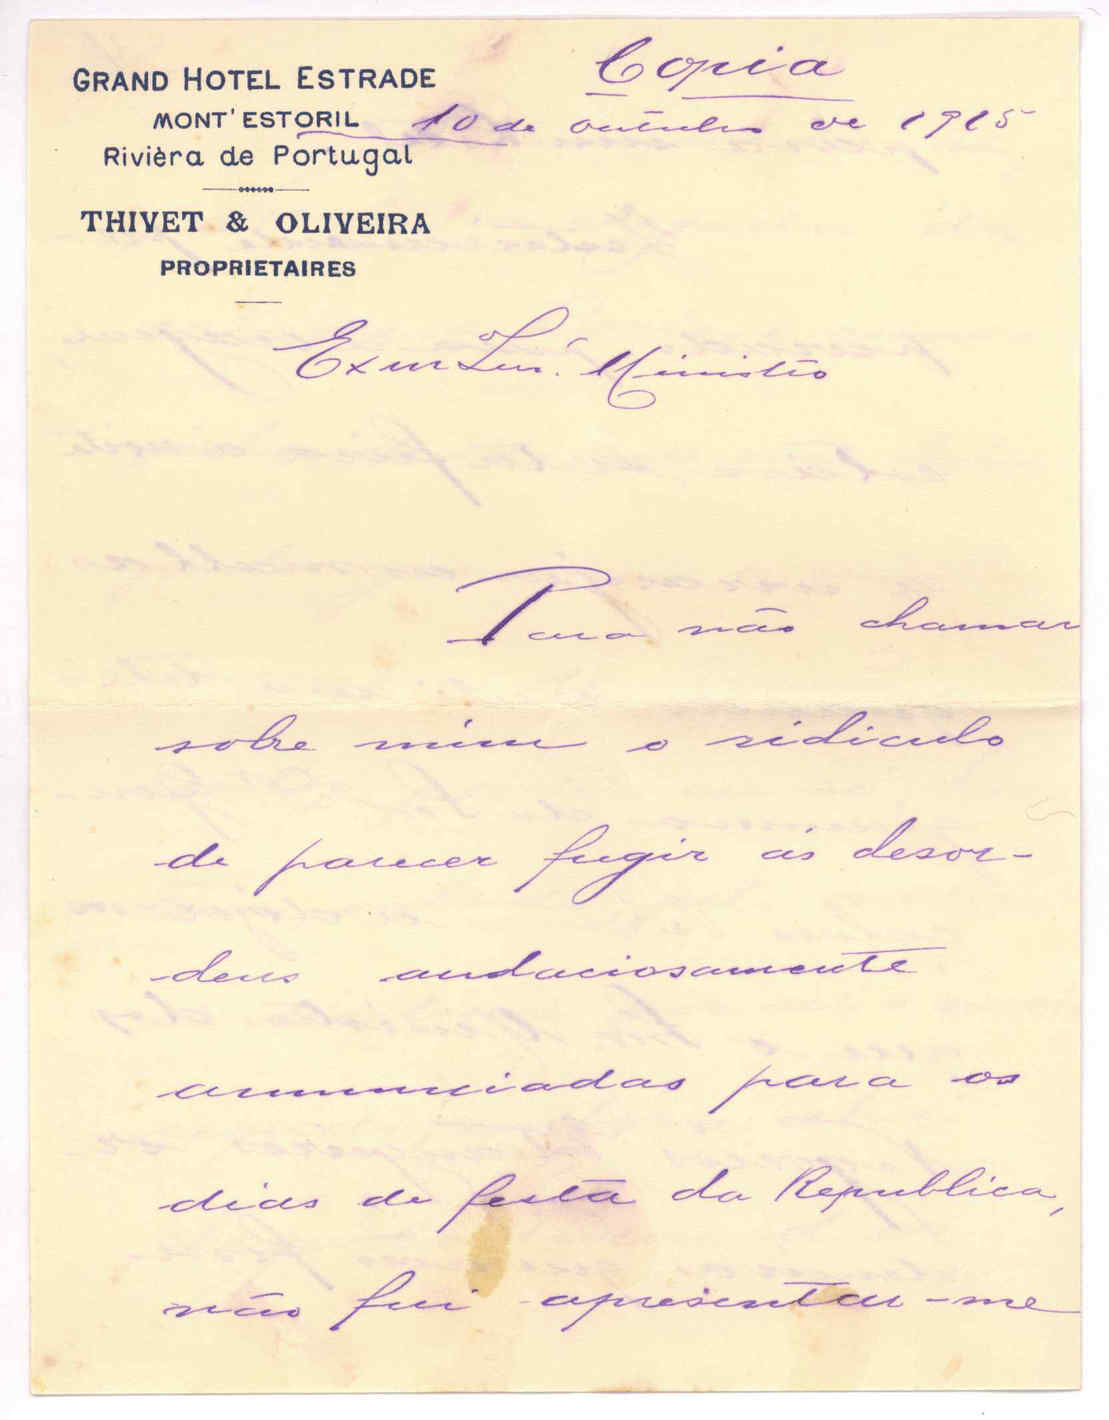 Copia
GRAND HOTEL ESTRADE
MONT'ESTORIL
Rivièra de Portugal
THIVET & OLIVEIRA
PROPRIETAIRES
10 de outubro de 1915
Exmo Snr. Ministro
Para não chamar
sobre mim o ridiculo
de parecer fugir ás desor-
dens audaciosamente
annunciadas para os
dias de festa da Republica,
não fui apresentar-me